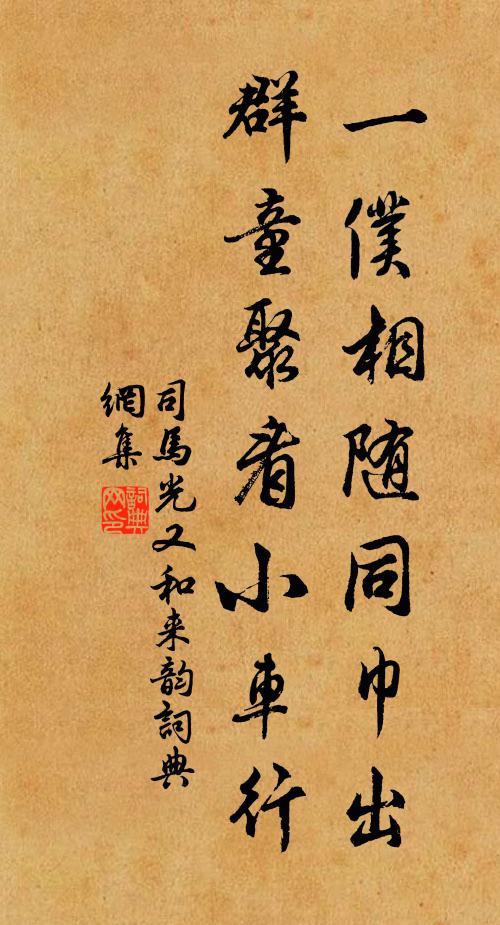 一僕相随同巾出
群童聚看小車行
司馬光又和来韵詞典
網集
詞典网印